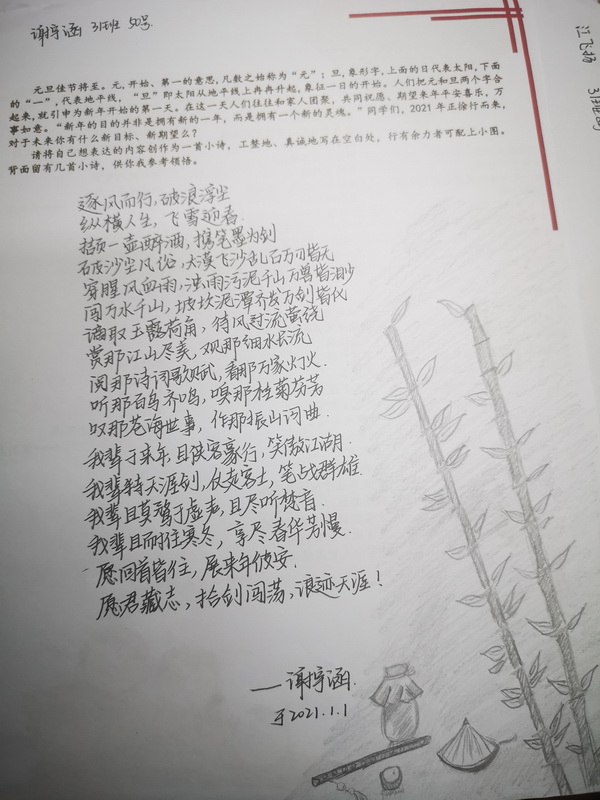 谢宇涵 31班 50号.
江飞扬
元旦佳节将至。元，开始、第一的意思，凡数之始称为“元”；旦，象形字，上面的日代表太阳，下面
的“一”，代表地平线，“旦”即太阳从地平线上冉冉升起，象征一日的开始。人们把元和旦两个字合
起来，就引申为新年开始的第一天。在这一天人们往往和家人团聚，共同祝愿、期望来年平安喜乐，万
事如意。“新年的目的并非是拥有新的一年，而是拥有一个新的灵魂。”同学们，2021年正徐行而来，
对于未来你有什么新目标、新期望么？
请将自己想表达的内容创作为一首小诗，工整地、真诚地写在空白处，行有余力者可配上小图。
背面留有几首小诗，供你我参考领悟。
逐风而行，破浪浮尘
纵横人生，飞雪迎春.
一壶醉酒，携笔墨为剑
破沙尘风俗，大漠飞沙乱石万刃皆无
穿腥风血雨，洪雨污泥千山万兽皆泪吵
闯万水千山，坡坎泥潭齐发万剑皆化
谪取玉露荷角，待风过流萤绕
赏那江山尽美，观那细水长流
阅那诗词歌赋，看那万家灯火.
听那百鸟齐鸣，嗅那桂菊芬芳
叹那苍海世事，作那振山词曲.
我辈于来年，且陕客豪行，笑傲江湖.
我辈持天涯剑，仗卖客士，笔战群雄.
我辈且莫骛于虚声，且尽听梵音.
我辈且耐住寒冬，享尽春华芳慢.
愿回首皆往，展来年彼安.
愿君藏志，拾剑闯荡，浪迹天涯！
—谢宇涵.
于2021.1.1